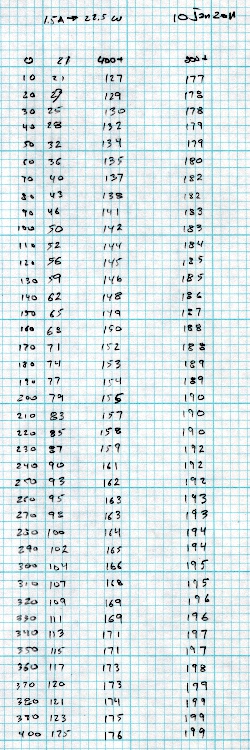 1.5A → 22.5 W 10 Jan 2011
0 21 400+ 800+
10 21 127 177
20 23 129 178
30 25 130 178
40 28 132 179
50 32 134 179
60 36 135 180
70 40 137 182
80 43 138 182
90 46 141 183
100 50 142 183
110 52 144 184
120 56 145 185
130 59 146 185
140 62 148 186
150 65 149 187
160 68 150 188
170 71 152 188
180 74 153 189
190 77 154 189
200 79 156 190
210 83 157 190
220 85 158 190
230 87 159 192
240 90 161 192
250 93 162 192
260 95 163 193
270 98 163 193
280 100 164 194
290 102 165 194
300 104 166 195
310 107 168 195
320 109 169 196
330 111 169 196
340 113 171 197
350 115 171 197
360 117 173 198
370 120 173 199
380 121 174 199
390 123 175 199
400 125 176 199